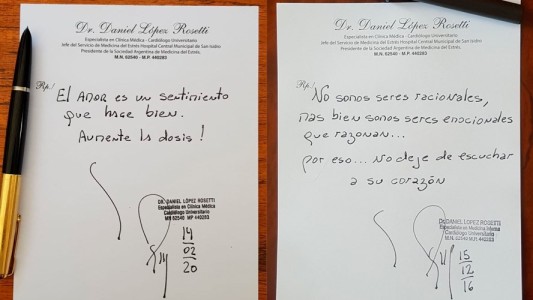 Dr. Daniel López Rosetti
Especialista en Clínica Médica - Cardiólogo Universitario
Jefe del Servicio de Medicina del Estrés Hospital Central Municipal de San Isidro
Presidente de la Sociedad Argentina de Medicina del Estrés.
M.N. 62540 - M.P. 440203
Rp./
El Amor es un sentimiento
que hace bien.
Aumente la dosis!
DR. DANIEL LÓPEZ ROSETTI
Especialista en Clínica Médica
Cardiólogo Universitario
MN 62540 MP 440203
14
02
20
Dr. Daniel López Rosetti
Especialista en Clínica Médica - Cardiólogo Universitario
Jefe del Servicio de Medicina del Estrés Hospital Central Municipal de San Isidro
Presidente de la Sociedad Argentina de Medicina del Estrés.
M.N. 62540 - M.P. 440203
Rp./
No somos seres racionales,
mas bien somos seres emocionales
que razonan...
por eso... No deje de escuchar
a su corazón
Dr. DANIEL LÓPEZ ROSETTI
Especialista en Medicina Interna
Cardiólogo Universitario
M.N. 62540 M.P. 440203
15
12
16